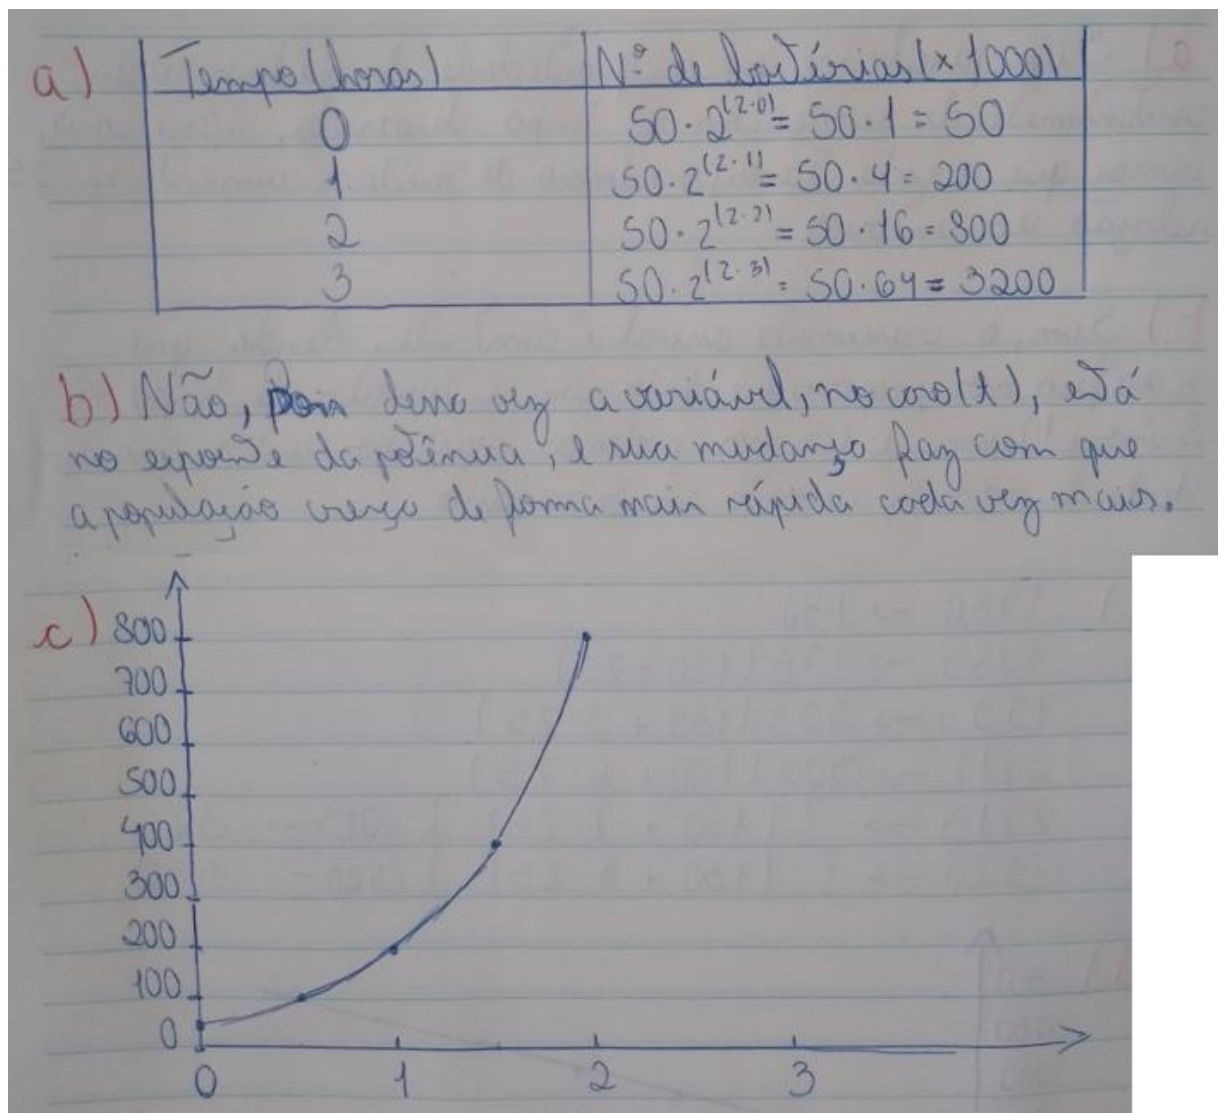 a) Tempo (horas) Nº de bactérias (x 1000)
0 50 · 2^(2·0) = 50 · 1 = 50
1 50 · 2^(2·1) = 50 · 4 = 200
2 50 · 2^(2·2) = 50 · 16 = 800
3 50 · 2^(2·3) = 50 · 64 = 3200
b) Não, pois dessa vez a variável, no caso (t), está
no expoente da potência, e sua mudança faz com que
a população cresça de forma mais rápida cada vez mais.
c) 800
700
600
500
400
300
200
100
0
0 1 2 3